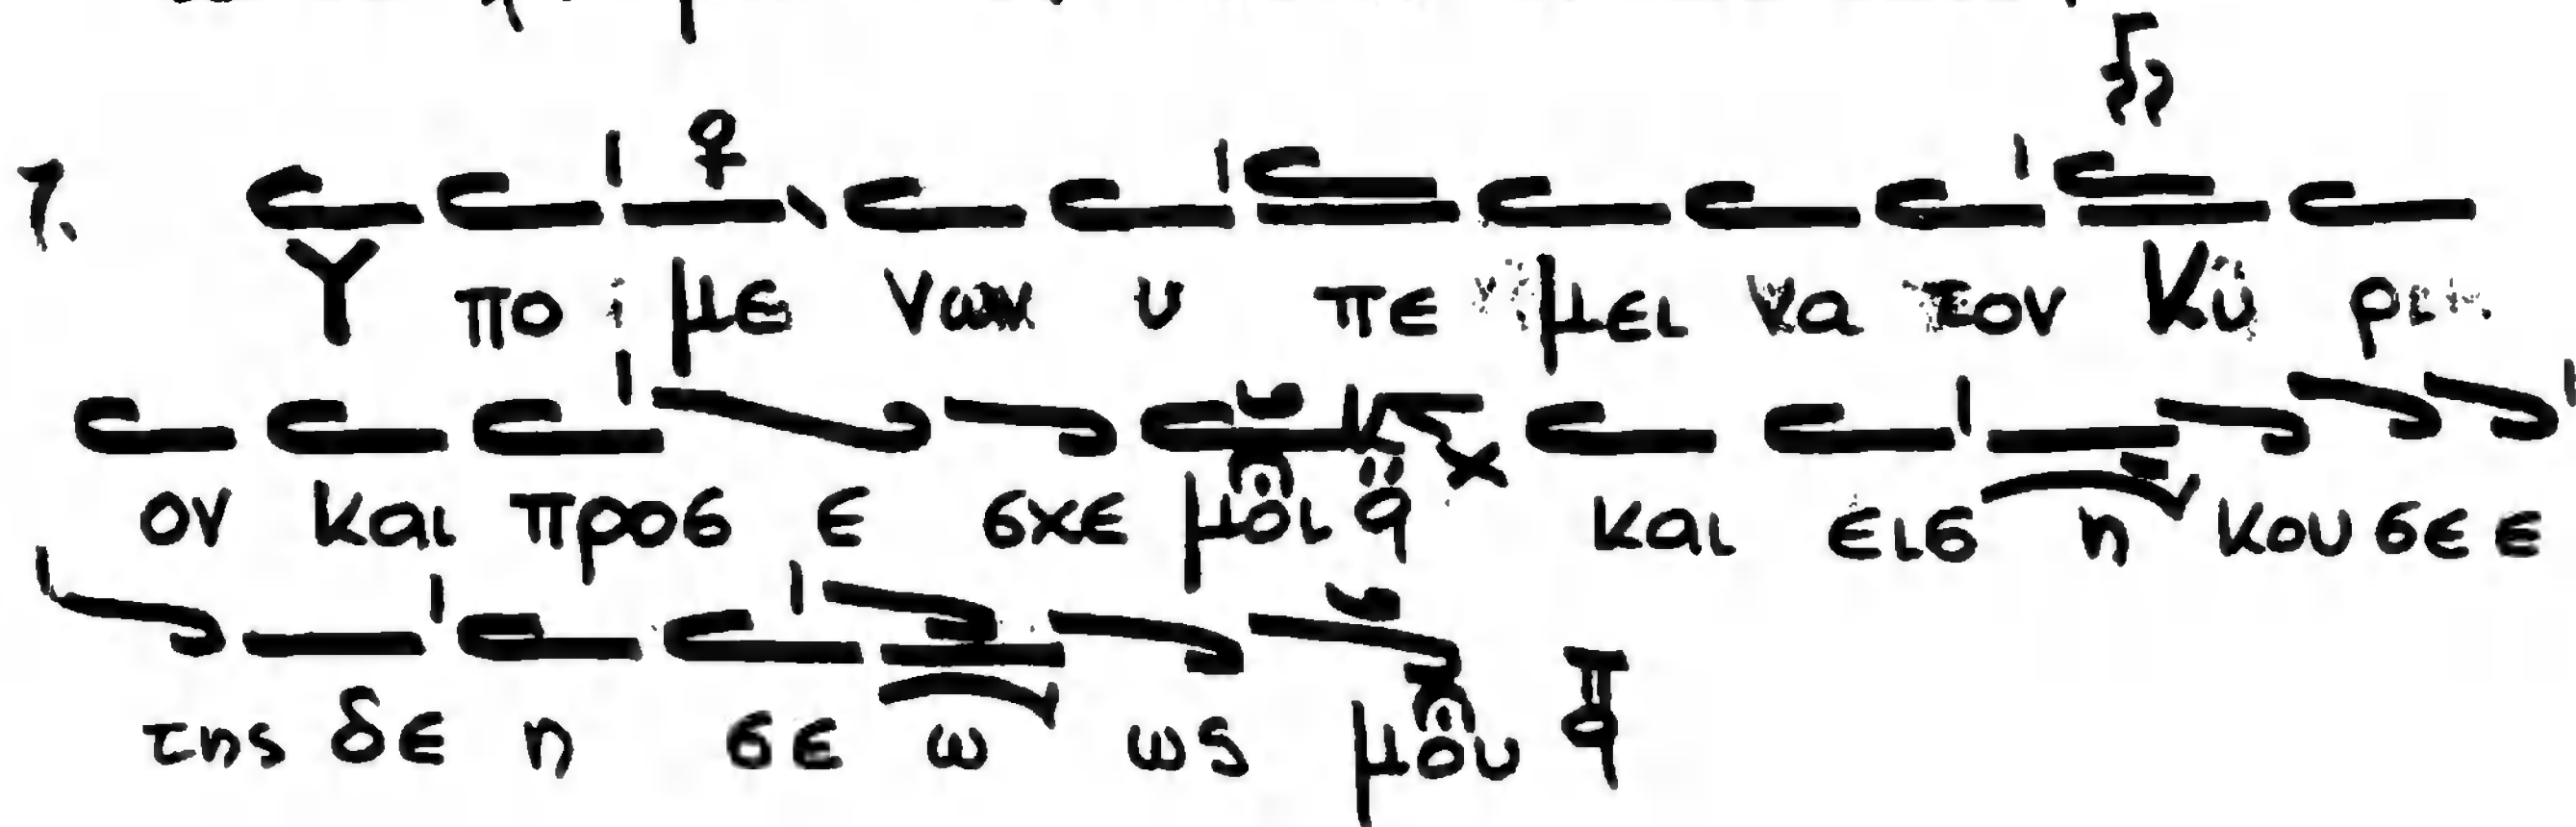 7.
Υ πο με νων υ πε μει να τον Κυ ρι
ον και προσ ε σχε μοι και εισ η κου σε ε
της δε η σε ω ως μου